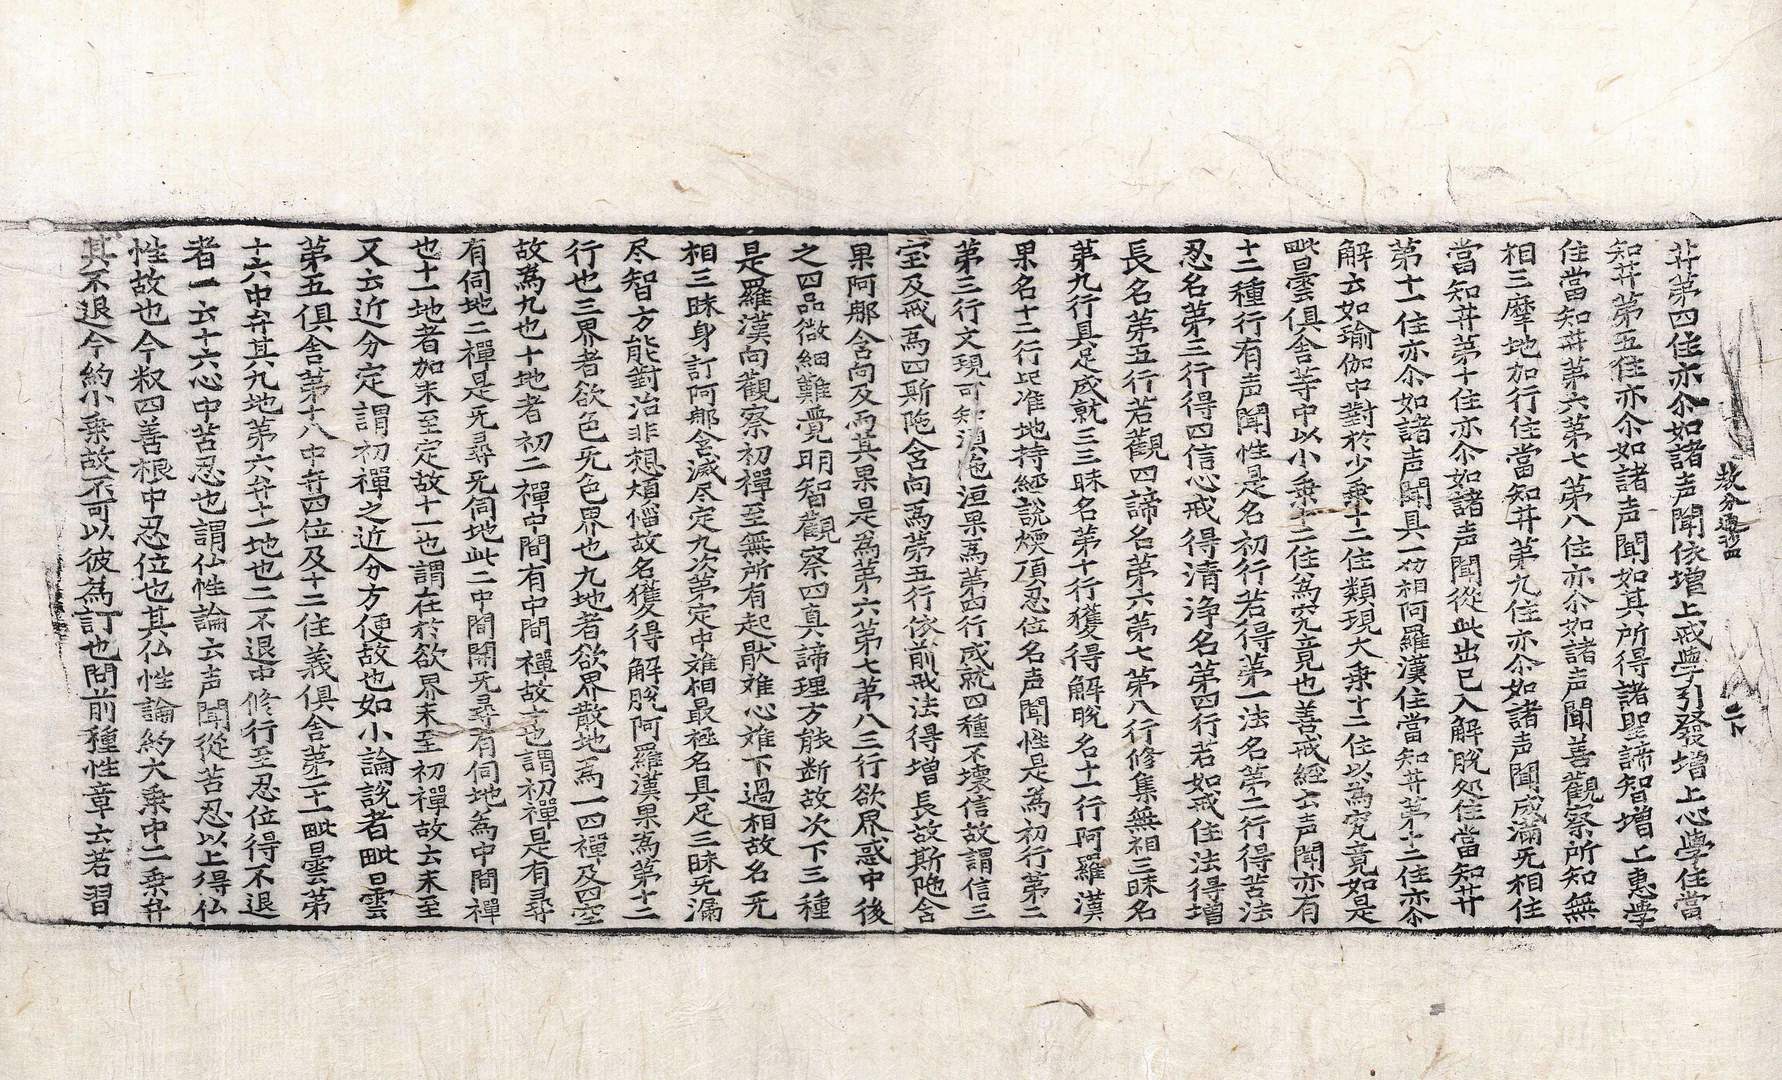 教分通抄四 二下
𦬇第四住亦尒如諸声聞依增上戒學引發增上心學住當
知𦬇第五住亦尒如諸声聞如其所得諸聖諦智增上惠學
住當知𦬇第六第七第八住亦尒如諸声聞善觀察所知無
相三摩地加行住當知𦬇第九住亦尒如諸声聞成滿无相住
當知𦬇第十住亦尒如諸声聞從此出已入解脫処住當知𦬇
第十一住亦尒如諸声聞具一切相阿羅漢住當知𦬇第十二住亦尒
解云如瑜伽中對於少乘十二住類現大乘十二住以為究竟如是
毗曇俱舍等中以小乘十二住為究竟也善戒經云声聞亦有
十二種行有声聞性是名初行若得第一法名第二行得苦法
忍名第三行得四信心戒得清淨名第四行若如戒住法得增
長名第五行若觀四諦名第六第七第八行修集無相三昧名
第九行具足成就三三昧名第十行獲得解脫名十一行阿羅漢
果名十二行此准地持經說煗頂忍位名声聞性是為初行第二
第三行文現可知湏陁洹果為第四行成就四種不壞信故謂信三
宝及戒為四斯陁含向為第五行依前戒法得增長故斯陁含
果阿那含向及而其果是為第六第七第八三行欲界惑中後
之四品微細難覺明智觀察四真諦理方能断故次下三種
是羅漢向觀察初禪至無所有起猒难心难下過相故名无
相三昧身訂阿那含滅尽定九次第定中难相最極名具足三昧无漏
尽智方能對治非想煩惱故名獲得解脫阿羅漢果為第十二
行也三界者欲色无色界也九地者欲界散地為一四禪及四空
故為九也十地者初二禪中間有中間禪故十也謂初禪是有尋
有伺地二禪是无尋无伺地此二中間開无尋有伺地為中間禪
也十一地者加未至定故十一也謂在於欲界未至初禪故云未至
又云近分定謂初禪之近分方便故也如小論說者毗曇
第五俱舍第十八中弁四位及十二住義俱舍第二十一毗曇第
十六中弁其九地第六弁十一地也二不退中修行至忍位得不退
者一云十六心中苦忍也謂仏性論云声聞從苦忍以上得仏
性故也今叙四善根中忍位也其仏性論約大乘中二乘弁
其不退今約小乘故不可以彼為訂也問前種性章云若習